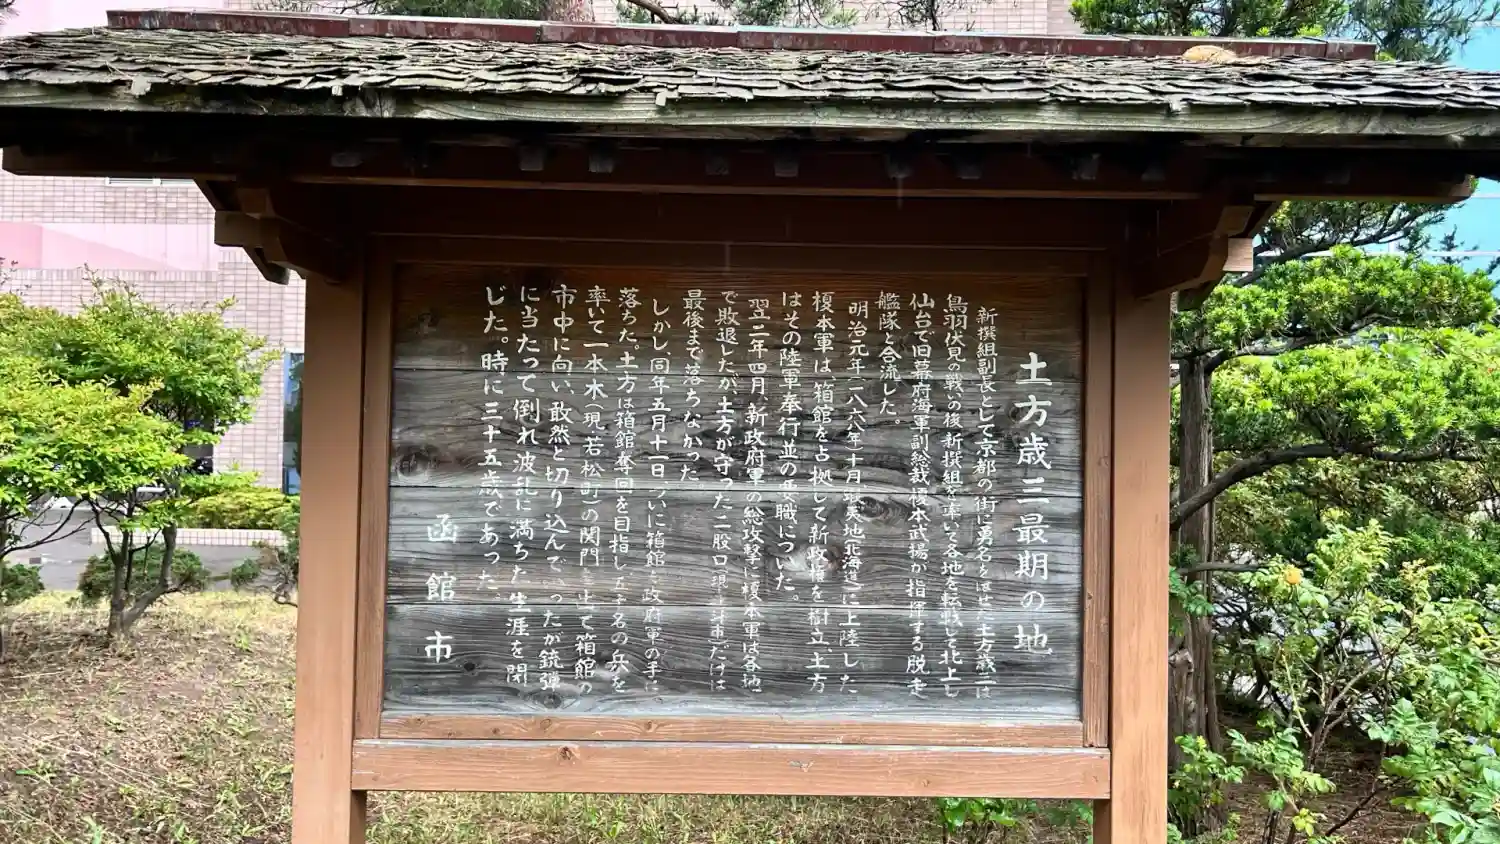 土方歳三最期の地
新撰組副長として京都の街に勇名をはせた土方歳三は
鳥羽伏見の戦いの後新撰組を率いて各地を転戦して北上し
仙台で旧幕府海軍副総裁榎本武揚が指揮する脱走
艦隊と合流した。
明治元年(一八六八年)十月蝦夷地(北海道)に上陸した
榎本軍は、箱館を占拠して新政権を樹立、土方
はその陸軍奉行並の要職についた。
翌二年四月、新政府軍の総攻撃に榎本軍は各地
で敗退したが、土方が守った二股口(現・斗市)だけは
最後まで落ちなかった
しかし、同年五月十一日、ついに箱館 政府軍の手に
落ちた。土方は箱館奪回を目指し 五十名の兵を
率いて一本木(現・若松町)の関門を出て箱館の
市中に向い、敢然と切り込んで った が銃弾
に当たって倒れ波乱に満ちた生涯を閉
じた。時に三十五歳であった。
函館市